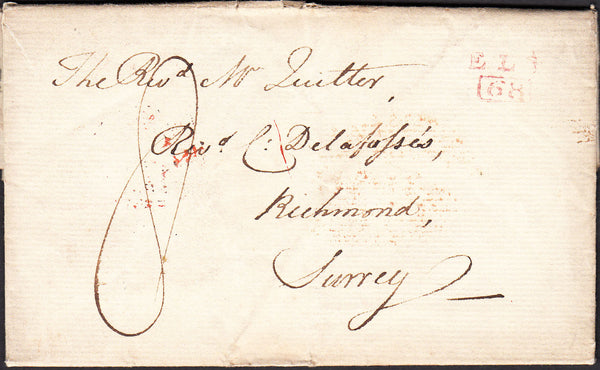 E L Y
68
The Revd. Mr Quilter,
Revd. C: Delafosse's,
Richmond,
Surrey
8